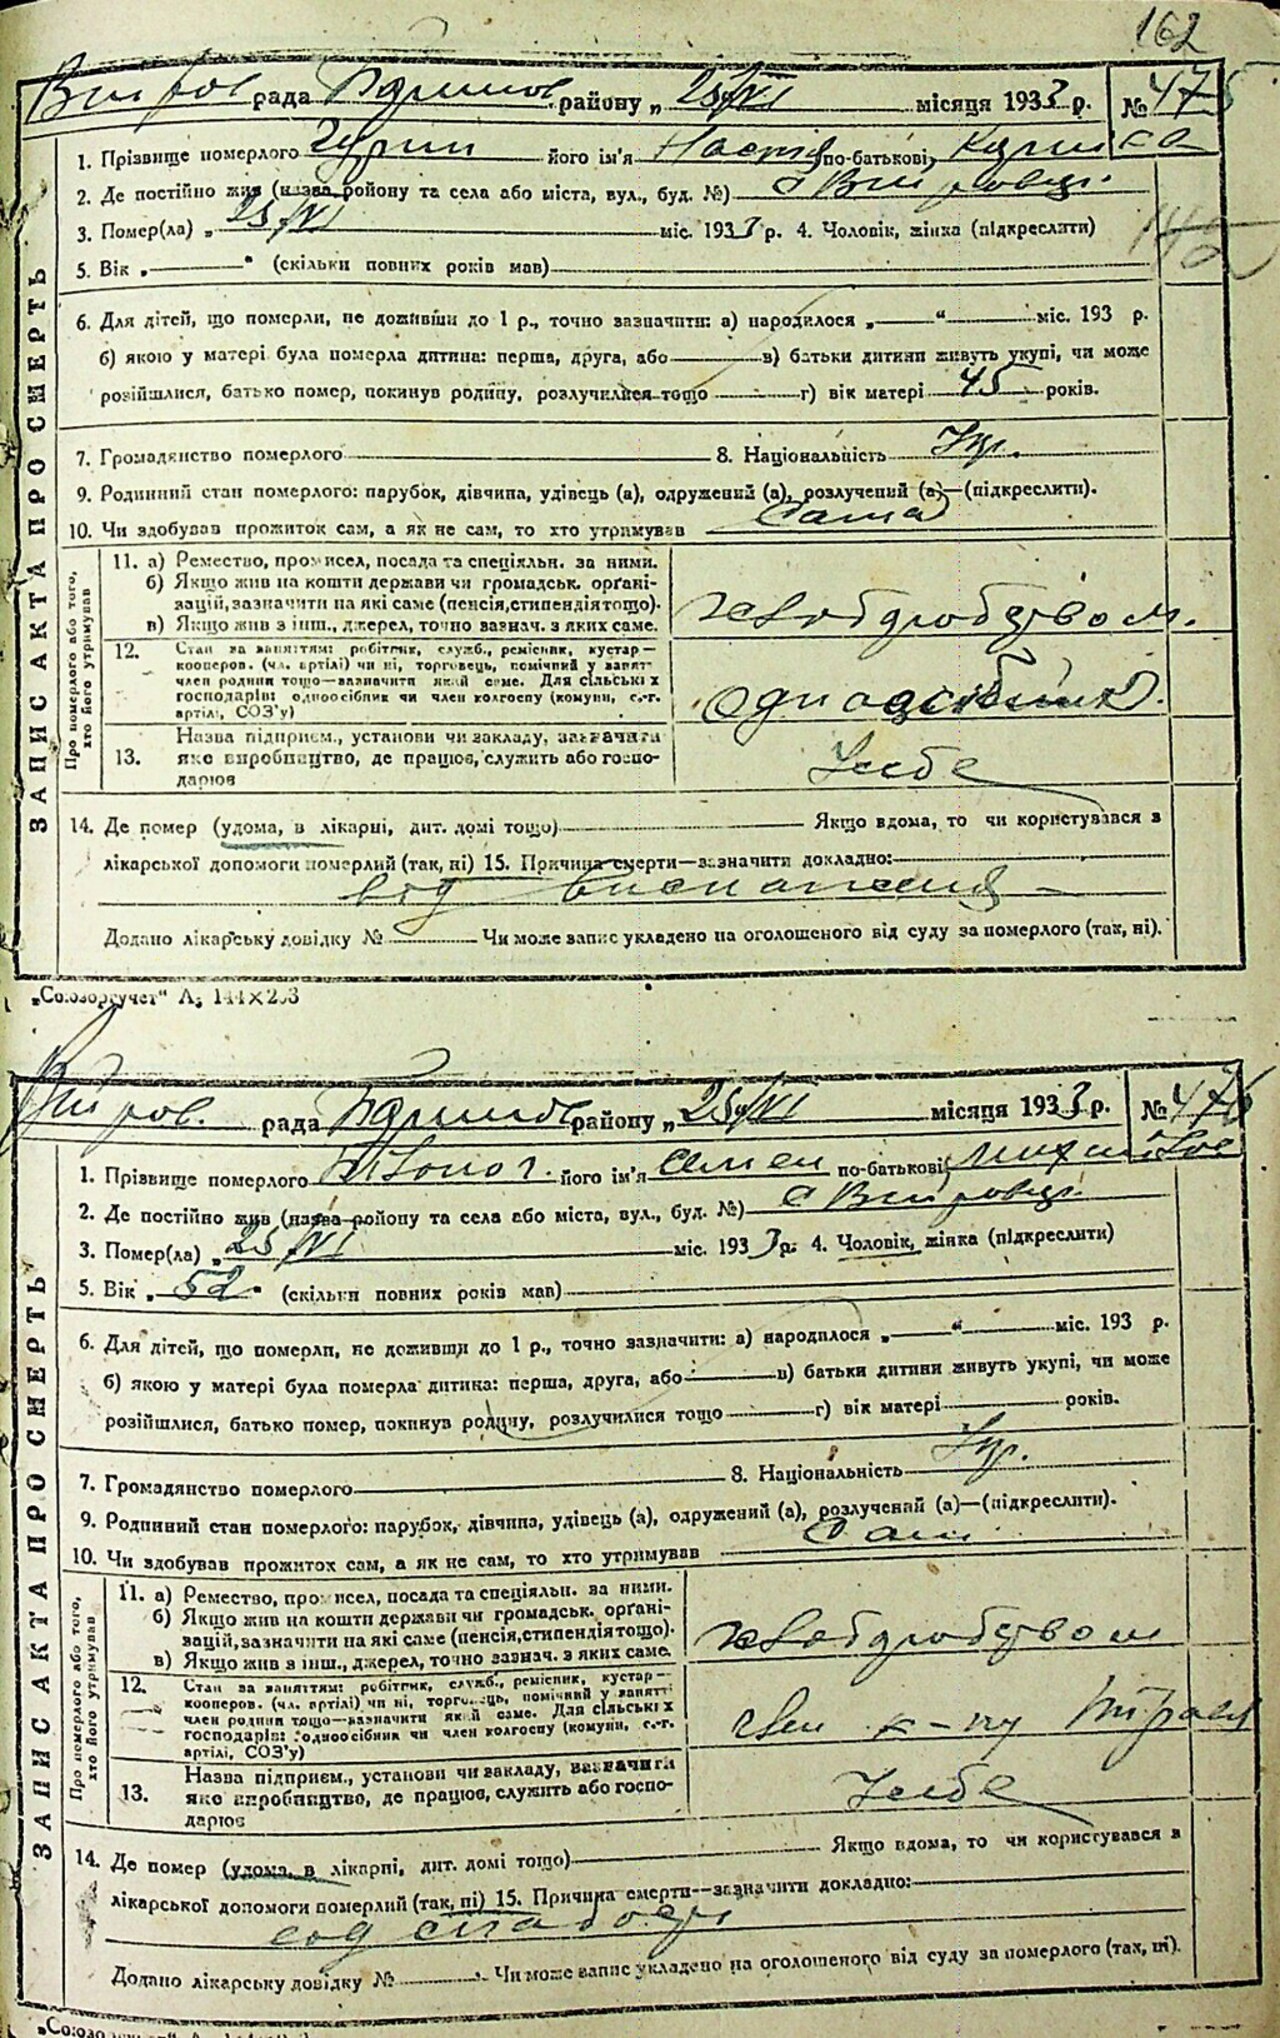 162
рада району „ 25/VI місяця 1933 р. № 475
1. Прізвище померлого його ім'я Настя по-батькові
2. Де постійно жив (назва району та села або міста, вул., буд. №) с
3. Помер(ла) „ 25/VI міс. 1933 р. 4. Чоловік, жінка (підкреслити)
142
5. Вік „ “ (скільки повних років мав)
6. Для дітей, що померли, не доживши до 1 р., точно зазначити: а) народилося „ “ міс. 193 р.
б) якою у матері була померла дитина: перша, друга, або в) батьки дитини живуть укупі, чи може
розійшлися, батько помер, покинув родину, розлучилися тощо г) вік матері 45 років.
7. Громадянство померлого 8. Національність Укр.
9. Родинний стан померлого: парубок, дівчина, удівець (а), одружений (а), розлучений (а)—(підкреслити).
10. Чи здобував прожиток сам, а як не сам, то хто утримував Сама
ЗАПИС АКТА ПРО СМЕРТЬ
Про померлого або того,
хто його утримував
11. а) Ремество, промисел, посада та спеціяльн. за ними.
б) Якщо жив на кошти держави чи громадськ. орґані-
зацій, зазначити на які саме (пенсія, стипендія тощо).
в) Якщо жив з інш., джерел, точно зазнач. з яких саме.
хліборобством.
12. Стан за заняттям: робітник, служб., ремісник, кустар—
кооперов. (чл. артілі) чи ні, торговець, помічний у занят-
член родини тощо—зазначити який саме. Для сільських
господарів: одноосібник чи член колгоспу (комуни, с.-г.
артілі, СОЗ'у)
одноосібник.
13. Назва підприєм., установи чи закладу, зазначити
яке виробництво, де працює, служить або госпо-
дарює
У себе
14. Де помер (удома, в лікарні, дит. домі тощо) Якщо вдома, то чи користувався з
лікарської допомоги померлий (так, ні) 15. Причина смерти—зазначити докладно:
від виснаження
Додано лікарську довідку № Чи може запис укладено на оголошеного від суду за померлого (так, ні).
„Союзоргучет“ А; 144×203
рада району „ 25/VI місяця 1933 р. № 476
1. Прізвище померлого його ім'я Семен по-батькові
2. Де постійно жив (назва району та села або міста, вул., буд. №) с
3. Помер(ла) „ 25/VI міс. 1933 р. 4. Чоловік, жінка (підкреслити)
5. Вік „ 52 “ (скільки повних років мав)
6. Для дітей, що померли, не доживши до 1 р., точно зазначити: а) народилося „ “ міс. 193 р.
б) якою у матері була померла дитина: перша, друга, або в) батьки дитини живуть укупі, чи може
розійшлися, батько помер, покинув родину, розлучилися тощо г) вік матері років.
7. Громадянство померлого 8. Національність Укр.
9. Родинний стан померлого: парубок, дівчина, удівець (а), одружений (а), розлучений (а)—(підкреслити).
10. Чи здобував прожиток сам, а як не сам, то хто утримував Сам
ЗАПИС АКТА ПРО СМЕРТЬ
Про померлого або того,
хто його утримував
11. а) Ремество, промисел, посада та спеціяльн. за ними.
б) Якщо жив на кошти держави чи громадськ. орґані-
зацій, зазначити на які саме (пенсія, стипендія тощо).
в) Якщо жив з інш., джерел, точно зазнач. з яких саме.
хліборобством
12. Стан за заняттям: робітник, служб., ремісник, кустар—
кооперов. (чл. артілі) чи ні, торговець, помічний у занятті
член родини тощо—зазначити який саме. Для сільських
господарів: одноосібник чи член колгоспу (комуни, с.-г.
артілі, СОЗ'у)
член к-пу
13. Назва підприєм., установи чи закладу, зазначити
яке виробництво, де працює, служить або госпо-
дарює
У себе
14. Де помер (удома, в лікарні, дит. домі тощо) Якщо вдома, то чи користувався з
лікарської допомоги померлий (так, ні) 15. Причина смерти—зазначити докладно:
Додано лікарську довідку № Чи може запис укладено на оголошеного від суду за померлого (так, ні).